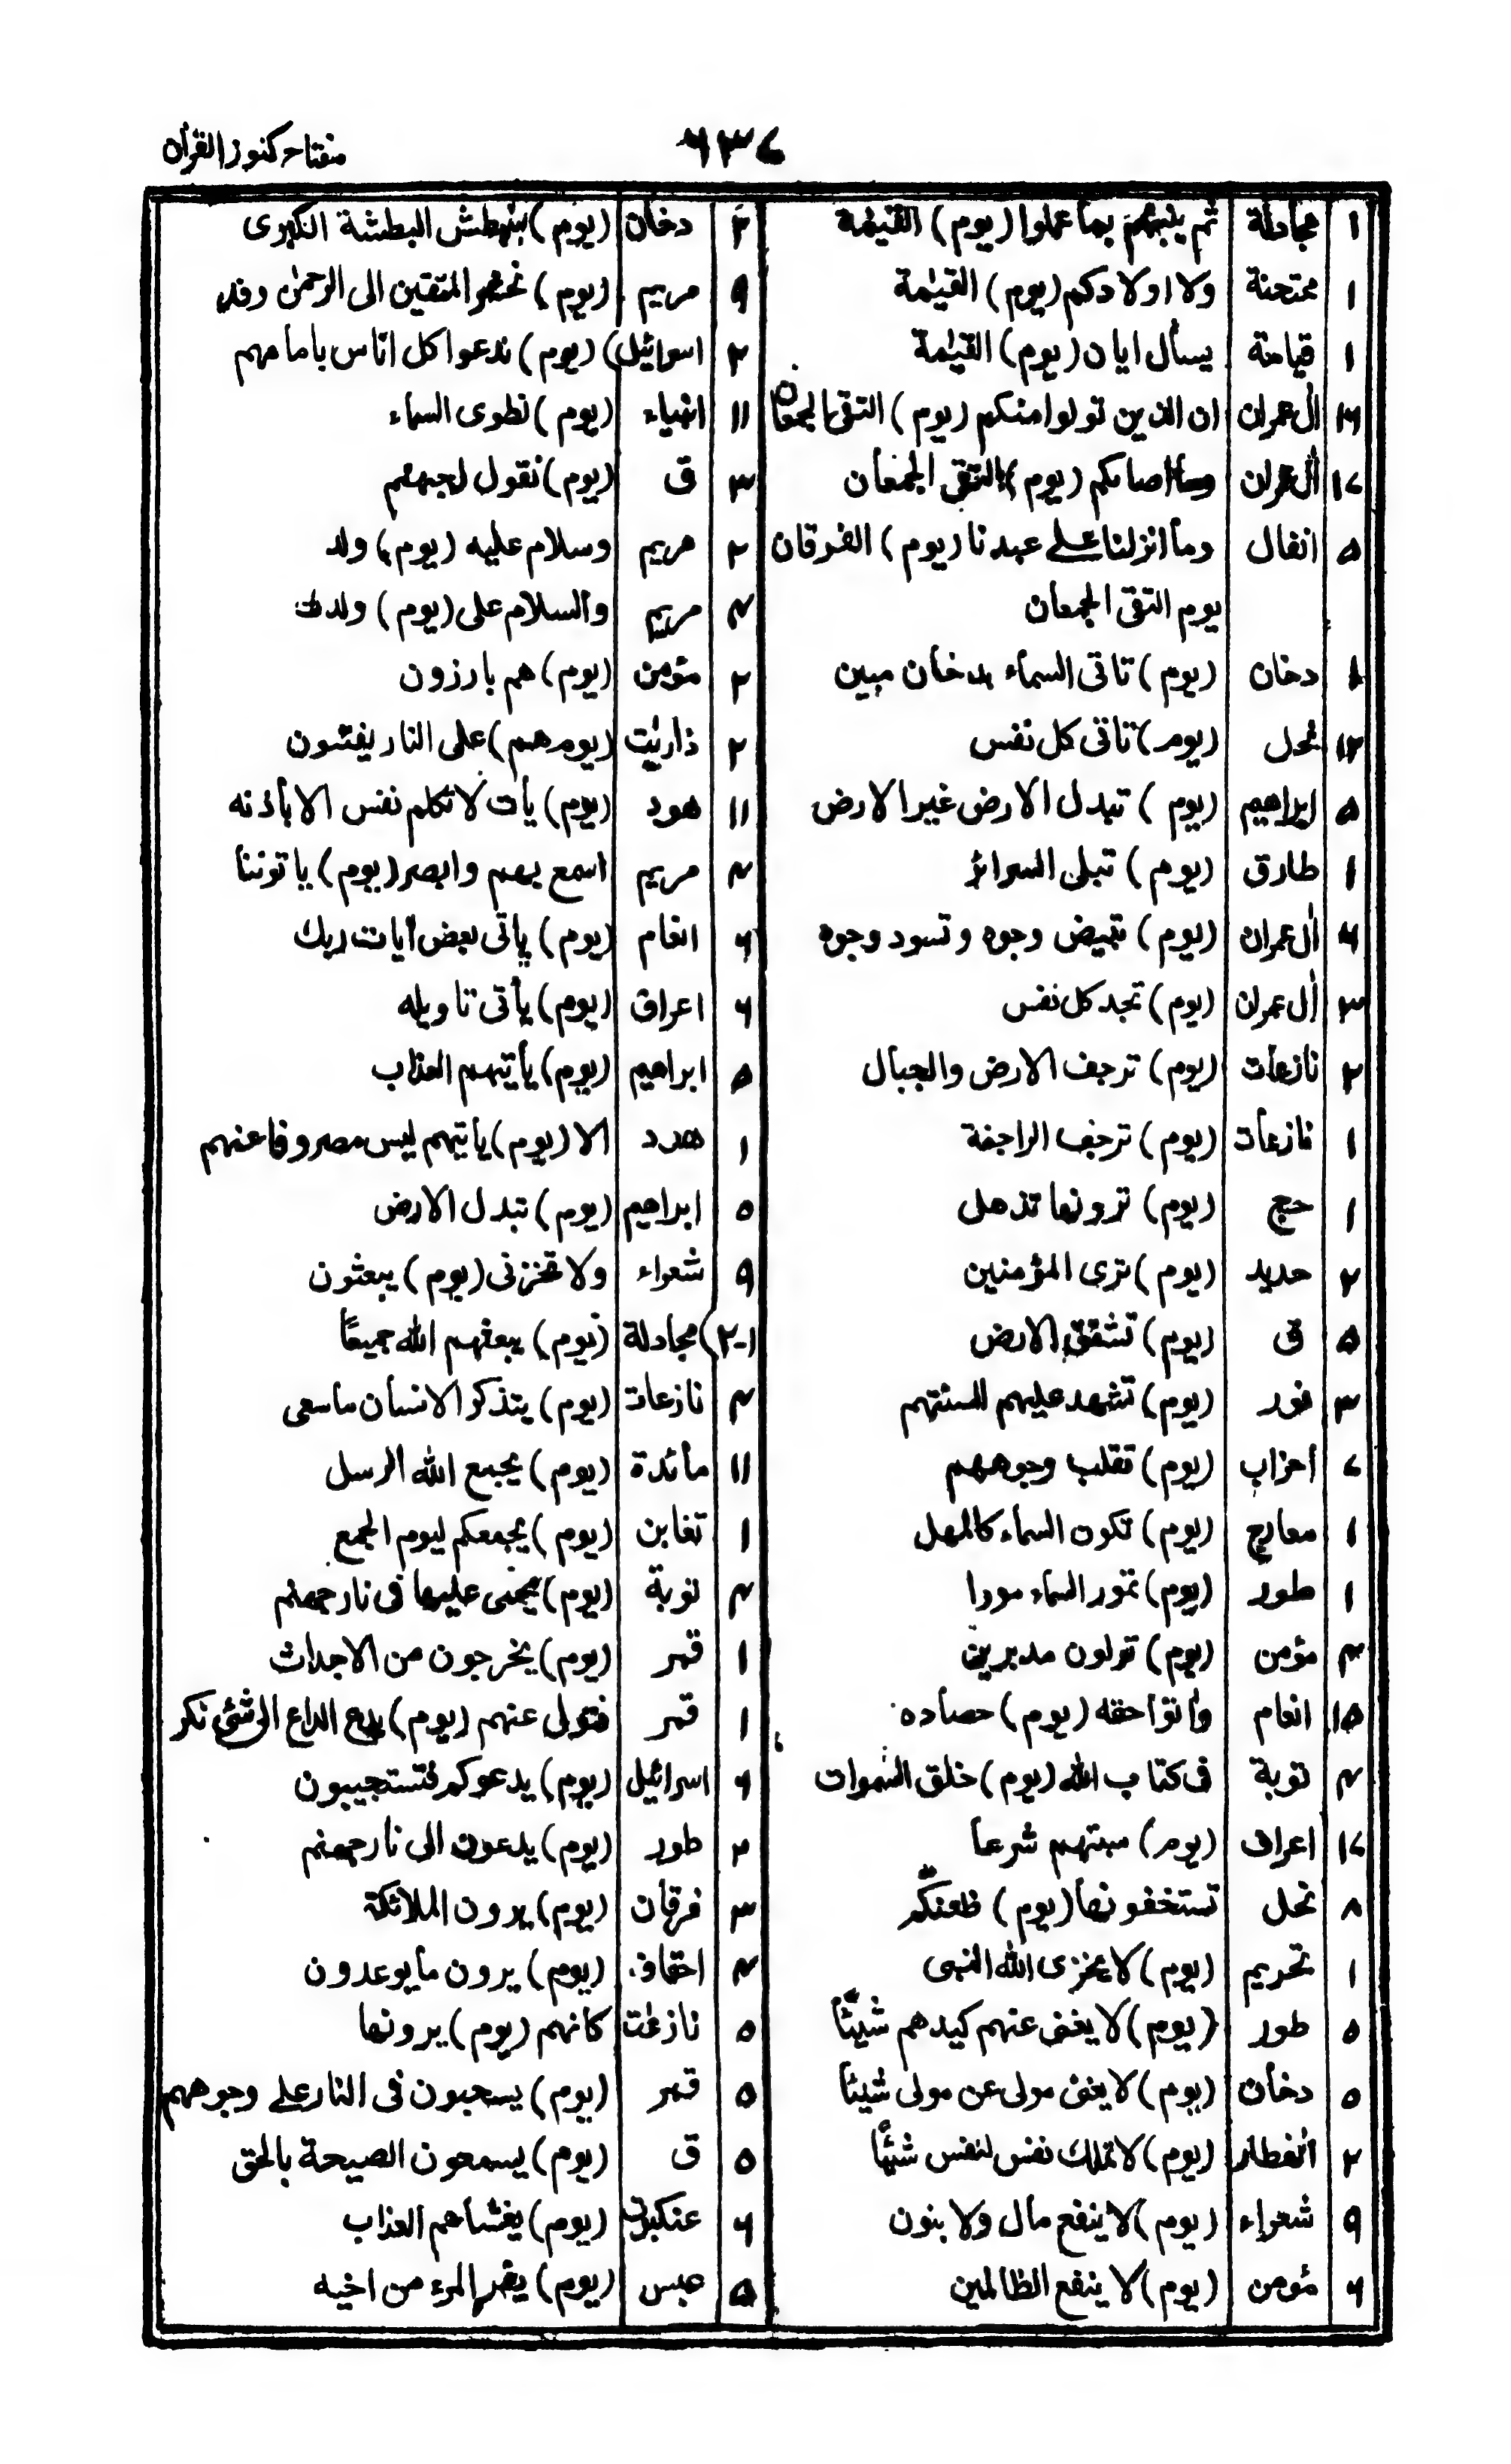 مفتاح كنوز القرآن
٦٣٧
١ مجادلة ثم ينبئهم بما عملوا (يوم) القيٰمة
١ ممتحنة ولا اولادكم (يوم) القيٰمة
١ قيامة يسأل ايان (يوم) القيٰمة
١٦ اٰل عمران ان الذين تولوا منكم (يوم) التقى الجمعان
١٧ اٰل عمران وما اصابكم (يوم) التقى الجمعان
٥ انفال وما انزلنا علے عبدنا (يوم) الفرقان
يوم التقى الجمعان
١ دخان (يوم) تاتى السماء بدخان مبين
١٢ نحل (يوم) تاتى كل نفس
٥ ابراهيم (يوم) تبدل الارض غير الارض
١ طارق (يوم) تبلى السرائر
٦ اٰل عمران (يوم) تبيض وجوه وتسود وجوه
٣ اٰل عمران (يوم) تجد كل نفس
٢ نازعات (يوم) ترجف الارض والجبال
١ نازعات (يوم) ترجف الراجفة
١ حج (يوم) ترونها تذهل
٢ حديد (يوم) ترى المؤمنين
٥ ق (يوم) تشقق الارض
٣ نور (يوم) تشهد عليهم السنتهم
٧ احزاب (يوم) تقلب وجوههم
١ معارج (يوم) تكون السماء كالمهل
١ طور (يوم) تمور السماء مورا
٤ مؤمن (يوم) تولون مدبرين
١٥ انعام واٰتوا حقه (يوم) حصاده
٤ توبة فى كتاب الله (يوم) خلق السموات
١٧ اعراف (يوم) سبتهم شرعا
٨ نحل تستخفونها (يوم) ظعنكم
١ تحريم (يوم) لا يخزى الله النبى
٥ طور (يوم) لا يغنى عنهم كيدهم شيئًا
٥ دخان (يوم) لا يغنى مولى عن مولى شيئًا
٢ انفطار (يوم) لا تملك نفس لنفس شيئًا
٩ شعراء (يوم) لا ينفع مال ولا بنون
٦ مؤمن (يوم) لا ينفع الظالمين
٢ دخان (يوم) نبطش البطشة الكبرى
٩ مريم (يوم) نحشر المتقين الى الرحمٰن وفد
٢ اسرائيل (يوم) ندعوا كل اناس بامامهم
١١ انبياء (يوم) نطوى السماء
٣ ق (يوم) نقول لجهنم
٢ مريم وسلام عليه (يوم) ولد
٤ مريم والسلام على (يوم) ولدت
٢ مؤمن (يوم) هم بارزون
٢ ذاريٰت (يوم هم) على النار يفتنون
١١ هود (يوم) يأت لا تكلم نفس الا باذنه
٤ مريم اسمع بهم وابصر (يوم) ياتوننا
٦ انعام (يوم) يأتى بعض اٰيات ربك
٦ اعراف (يوم) يأتى تاويله
٥ ابراهيم (يوم) يأتيهم العذاب
١ هود الا (يوم) يأتيهم ليس مصروفا عنهم
٥ ابراهيم (يوم) تبدل الارض
٩ شعراء ولا تخزنى (يوم) يبعثون
(٢-١) مجادلة (يوم) يبعثهم الله جميعًا
٤ نازعات (يوم) يتذكر الانسان ماسعى
١١ مائدة (يوم) يجمع الله الرسل
١ تغابن (يوم) يجمعكم ليوم الجمع
٤ توبة (يوم) يحمى عليها فى نار جهنم
١ قمر (يوم) يخرجون من الاجداث
١ قمر فتولى عنهم (يوم) يدع الداع الى شئ نكر
٦ اسرائيل (يوم) يدعوكم فتستجيبون
٢ طور (يوم) يدعون الى نار جهنم
٣ فرقان (يوم) يرون الملائكة
٤ احقاف (يوم) يرون ما يوعدون
٥ نازعٰت كانهم (يوم) يرونها
٥ قمر (يوم) يسحبون فى النار علے وجوههم
٥ ق (يوم) يسمعون الصيحة بالحق
٦ عنكبوت (يوم) يغشاهم العذاب
٥ عبس (يوم) يفر المرء من اخيه